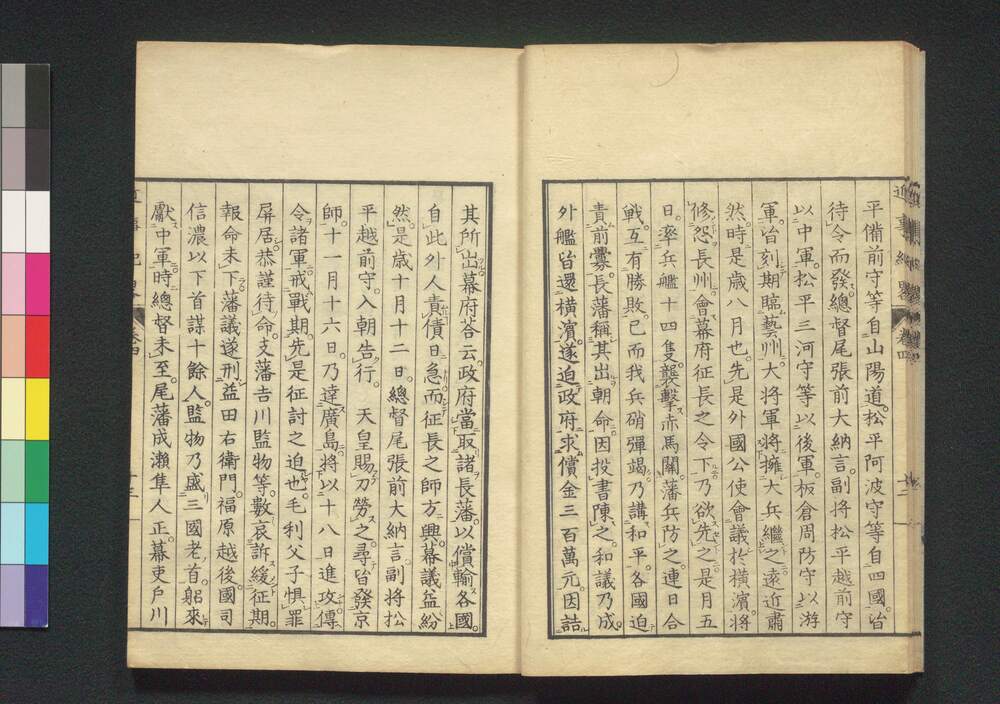 平備前守等自山陽道松平阿波守等自四國皆
待令而發總督尾張前大納言副將松平越前守
以中軍松平三河守等以後軍板倉周防守以游
軍皆刻期臨藝州大將軍將擁大兵繼之遠近肅
然時是歲八月也先是外國公使會議於橫濱將
修怨長州會幕府征長之令下乃欲先之是月五
日率兵艦十四隻襲擊赤馬關藩兵防之連日合
戰互有勝敗已而我兵硝彈竭乃講和平各國迫
責前釁長藩稱其出朝命因投書陳之和議乃成
外艦皆還橫濱遂迫政府求償金三百萬元因詰
其所出幕府荅云政府當取諸長藩以償輸各國
自此外人責債日急而征長之師方興幕議益紛
然是歲十月十二日總督尾張前大納言副將松
平越前守入朝告行　天皇賜刀勞之尋皆發京
師十一月十六日乃達廣島將以十八日進攻傳
令諸軍戒戰期先是征討之迫也毛利父子惧罪
屏居恭謹待命支藩吉川監物等數哀訴緩征期
報命未下藩議遂刑益田右衛門福原越後國司
信濃以下首謀十餘人監物乃盛三國老首躬來
獻中軍時總督未至尾藩成瀨隼人正幕吏戶川